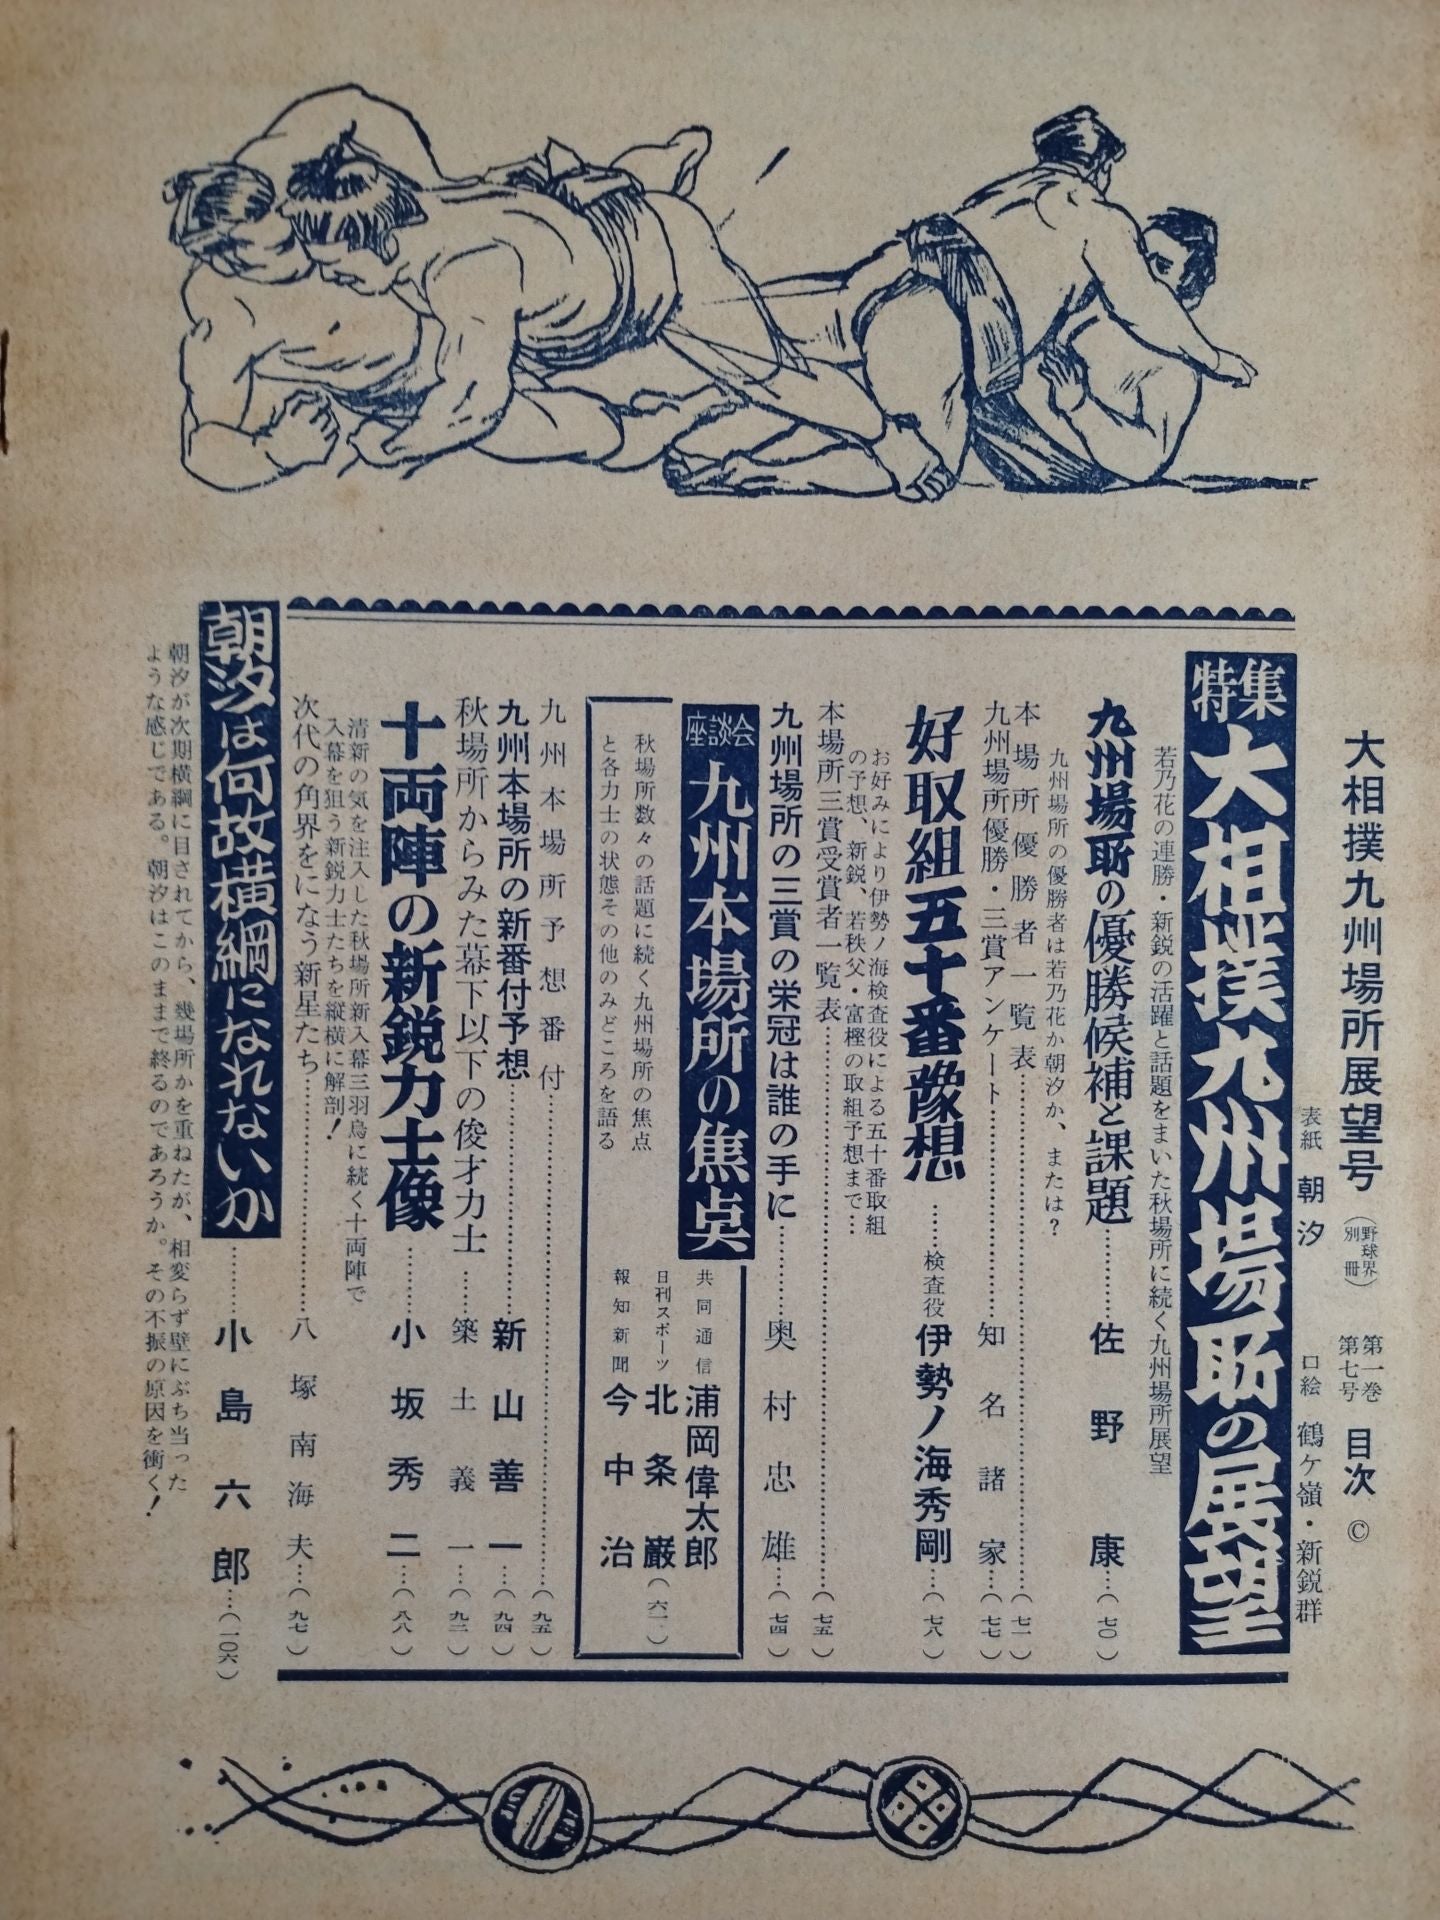 大相撲九州場所展望号（野球界別冊）第一巻第七号 目次 ©
表紙 朝汐 口絵 鶴ケ嶺・新鋭群
特集 大相撲九州場所の展望
若乃花の連勝・新鋭の活躍と話題をまいた秋場所に続く九州場所展望
九州場所の優勝候補と課題…………佐野康…（七〇）
九州場所の優勝者は若乃花か朝汐か、または？
本場所優勝者一覧表……………………（七一）
九州場所優勝・三賞アンケート……………知名諸家…（七七）
好取組五十番豫想……検査役 伊勢ノ海秀剛…（七八）
お好みにより伊勢ノ海検査役による五十番取組
の予想、新鋭、若秩父・富樫の取組予想まで…
本場所三賞受賞者一覧表……………………（七五）
九州場所の三賞の栄冠は誰の手に…………奥村忠雄…（七四）
座談会 九州本場所の焦点
共同通信 浦岡偉太郎
日刊スポーツ 北条巌（六一）
報知新聞 今中治
秋場所数々の話題に続く九州場所の焦点
と各力士の状態その他のみどころを語る
九州本場所予想番付……………………（九五）
九州本場所の新番付予想……………新山善一…（九四）
秋場所からみた幕下以下の俊才力士……築土義一…（九二）
十両陣の新鋭力士像…………小坂秀二…（八八）
清新の気を注入した秋場所新入幕三羽烏に続く十両陣で
入幕を狙う新鋭力士たちを縦横に解剖！
次代の角界をになう新星たち……………八塚南海夫…（九七）
朝汐は何故横綱になれないか…………小島六郎…（一〇六）
朝汐が次期横綱に目されてから、幾場所かを重ねたが、相変らず壁にぶち当った
ような感じである。朝汐はこのままで終るのであろうか。その不振の原因を衝く！